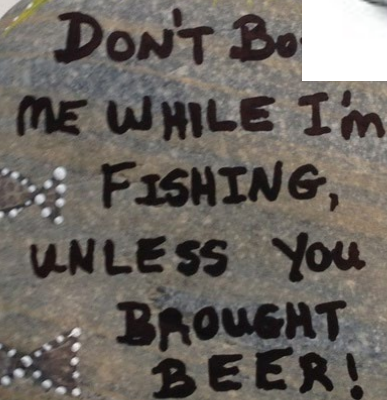 DON'T
ME WHILE I'm
FISHING,
UNLESS You
BROUGHT
BEER!